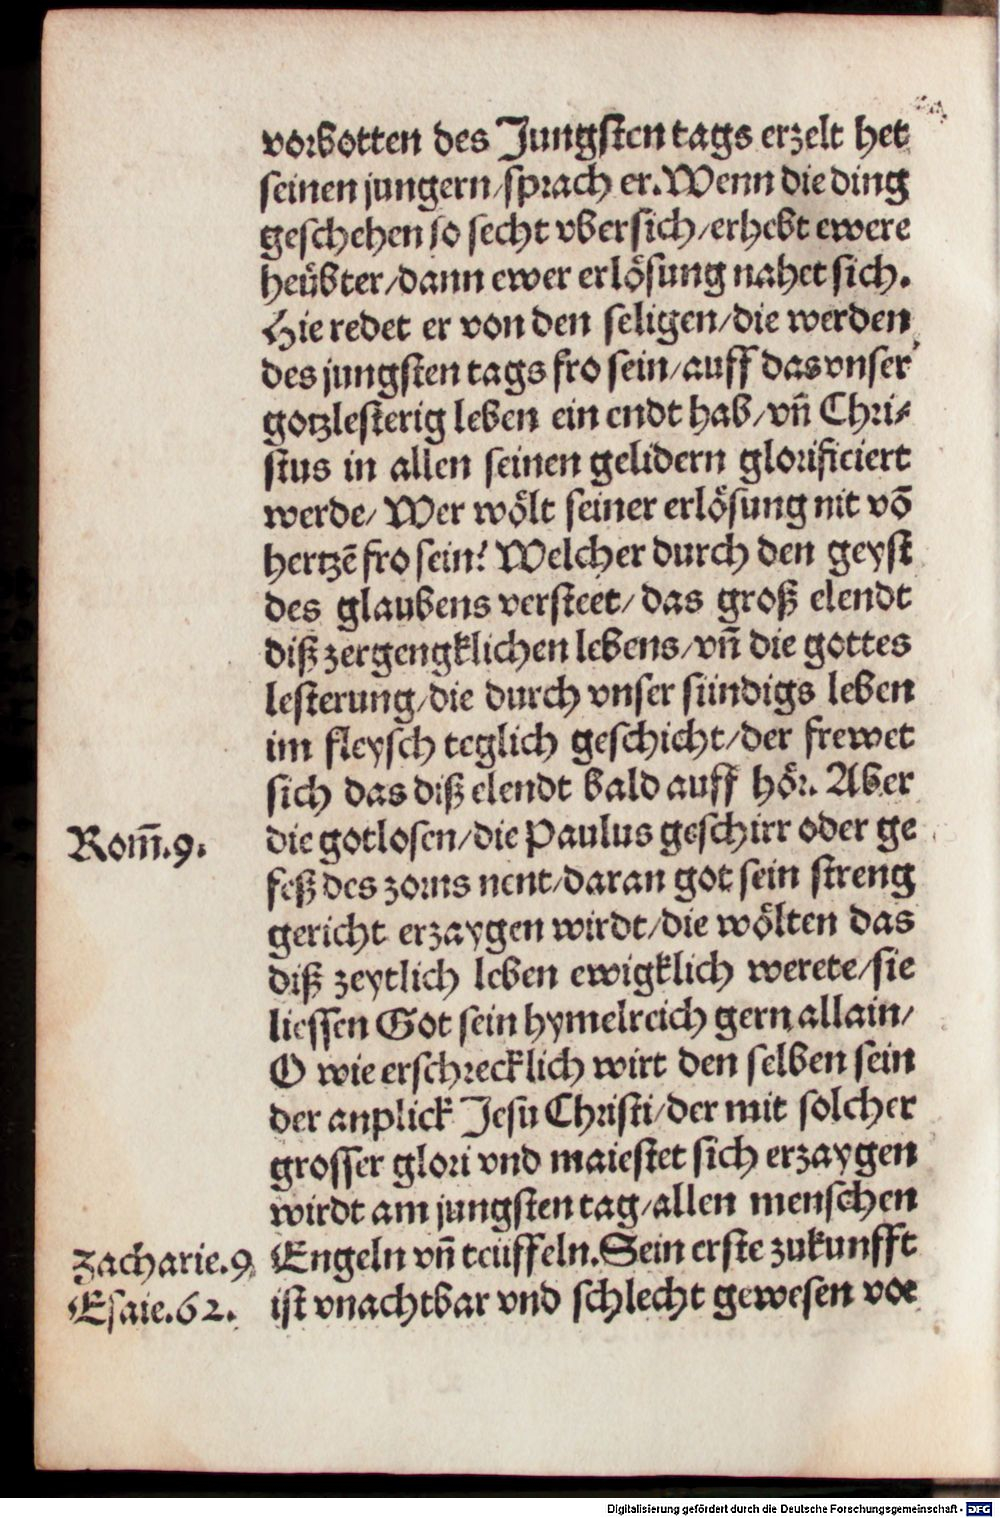 vorbotten des Jungsten tags erzelt het
seinen jungern/sprach er. Wenn die ding
geschehen so secht vbersich/erhebt ewere
heübter/dann ewer erlösung nahet sich.
Hie redet er von den seligen/die werden
des jungsten tags fro sein/auff das vnser
gotzlesterig leben ein endt hab/vn̄ Chri-
stus in allen seinen gelidern glorificiert
werde/ Wer wölt seiner erlösung nit vō
hertzē fro sein? Welcher durch den geyst
des glaubens versteet/ das groß elendt
diß zergengklichen lebens/vn̄ die gottes
lesterung/die durch vnser sündigs leben
im fleysch teglich geschicht/der frewet
sich das diß elendt bald auff hör. Aber
Rom̄.9. die gotlosen/die Paulus geschirr oder ge
feß des zorns nent/daran got sein streng
gericht erzaygen wirdt/die wölten das
diß zeytlich leben ewigklich werete/sie
liessen Got sein hymelreich gern allain/
O wie erschrecklich wirt den selben sein
der anplick Jesu Christi/der mit solcher
grosser glori vnd maiestet sich erzaygen
wirdt am jungsten tag/allen menschen
Zacharie.9. Engeln vn̄ teüffeln. Sein erste zukunfft
Esaie.62. ist vnachtbar vnd schlecht gewesen vor
Digitalisierung gefördert durch die Deutsche Forschungsgemeinschaft - DFG